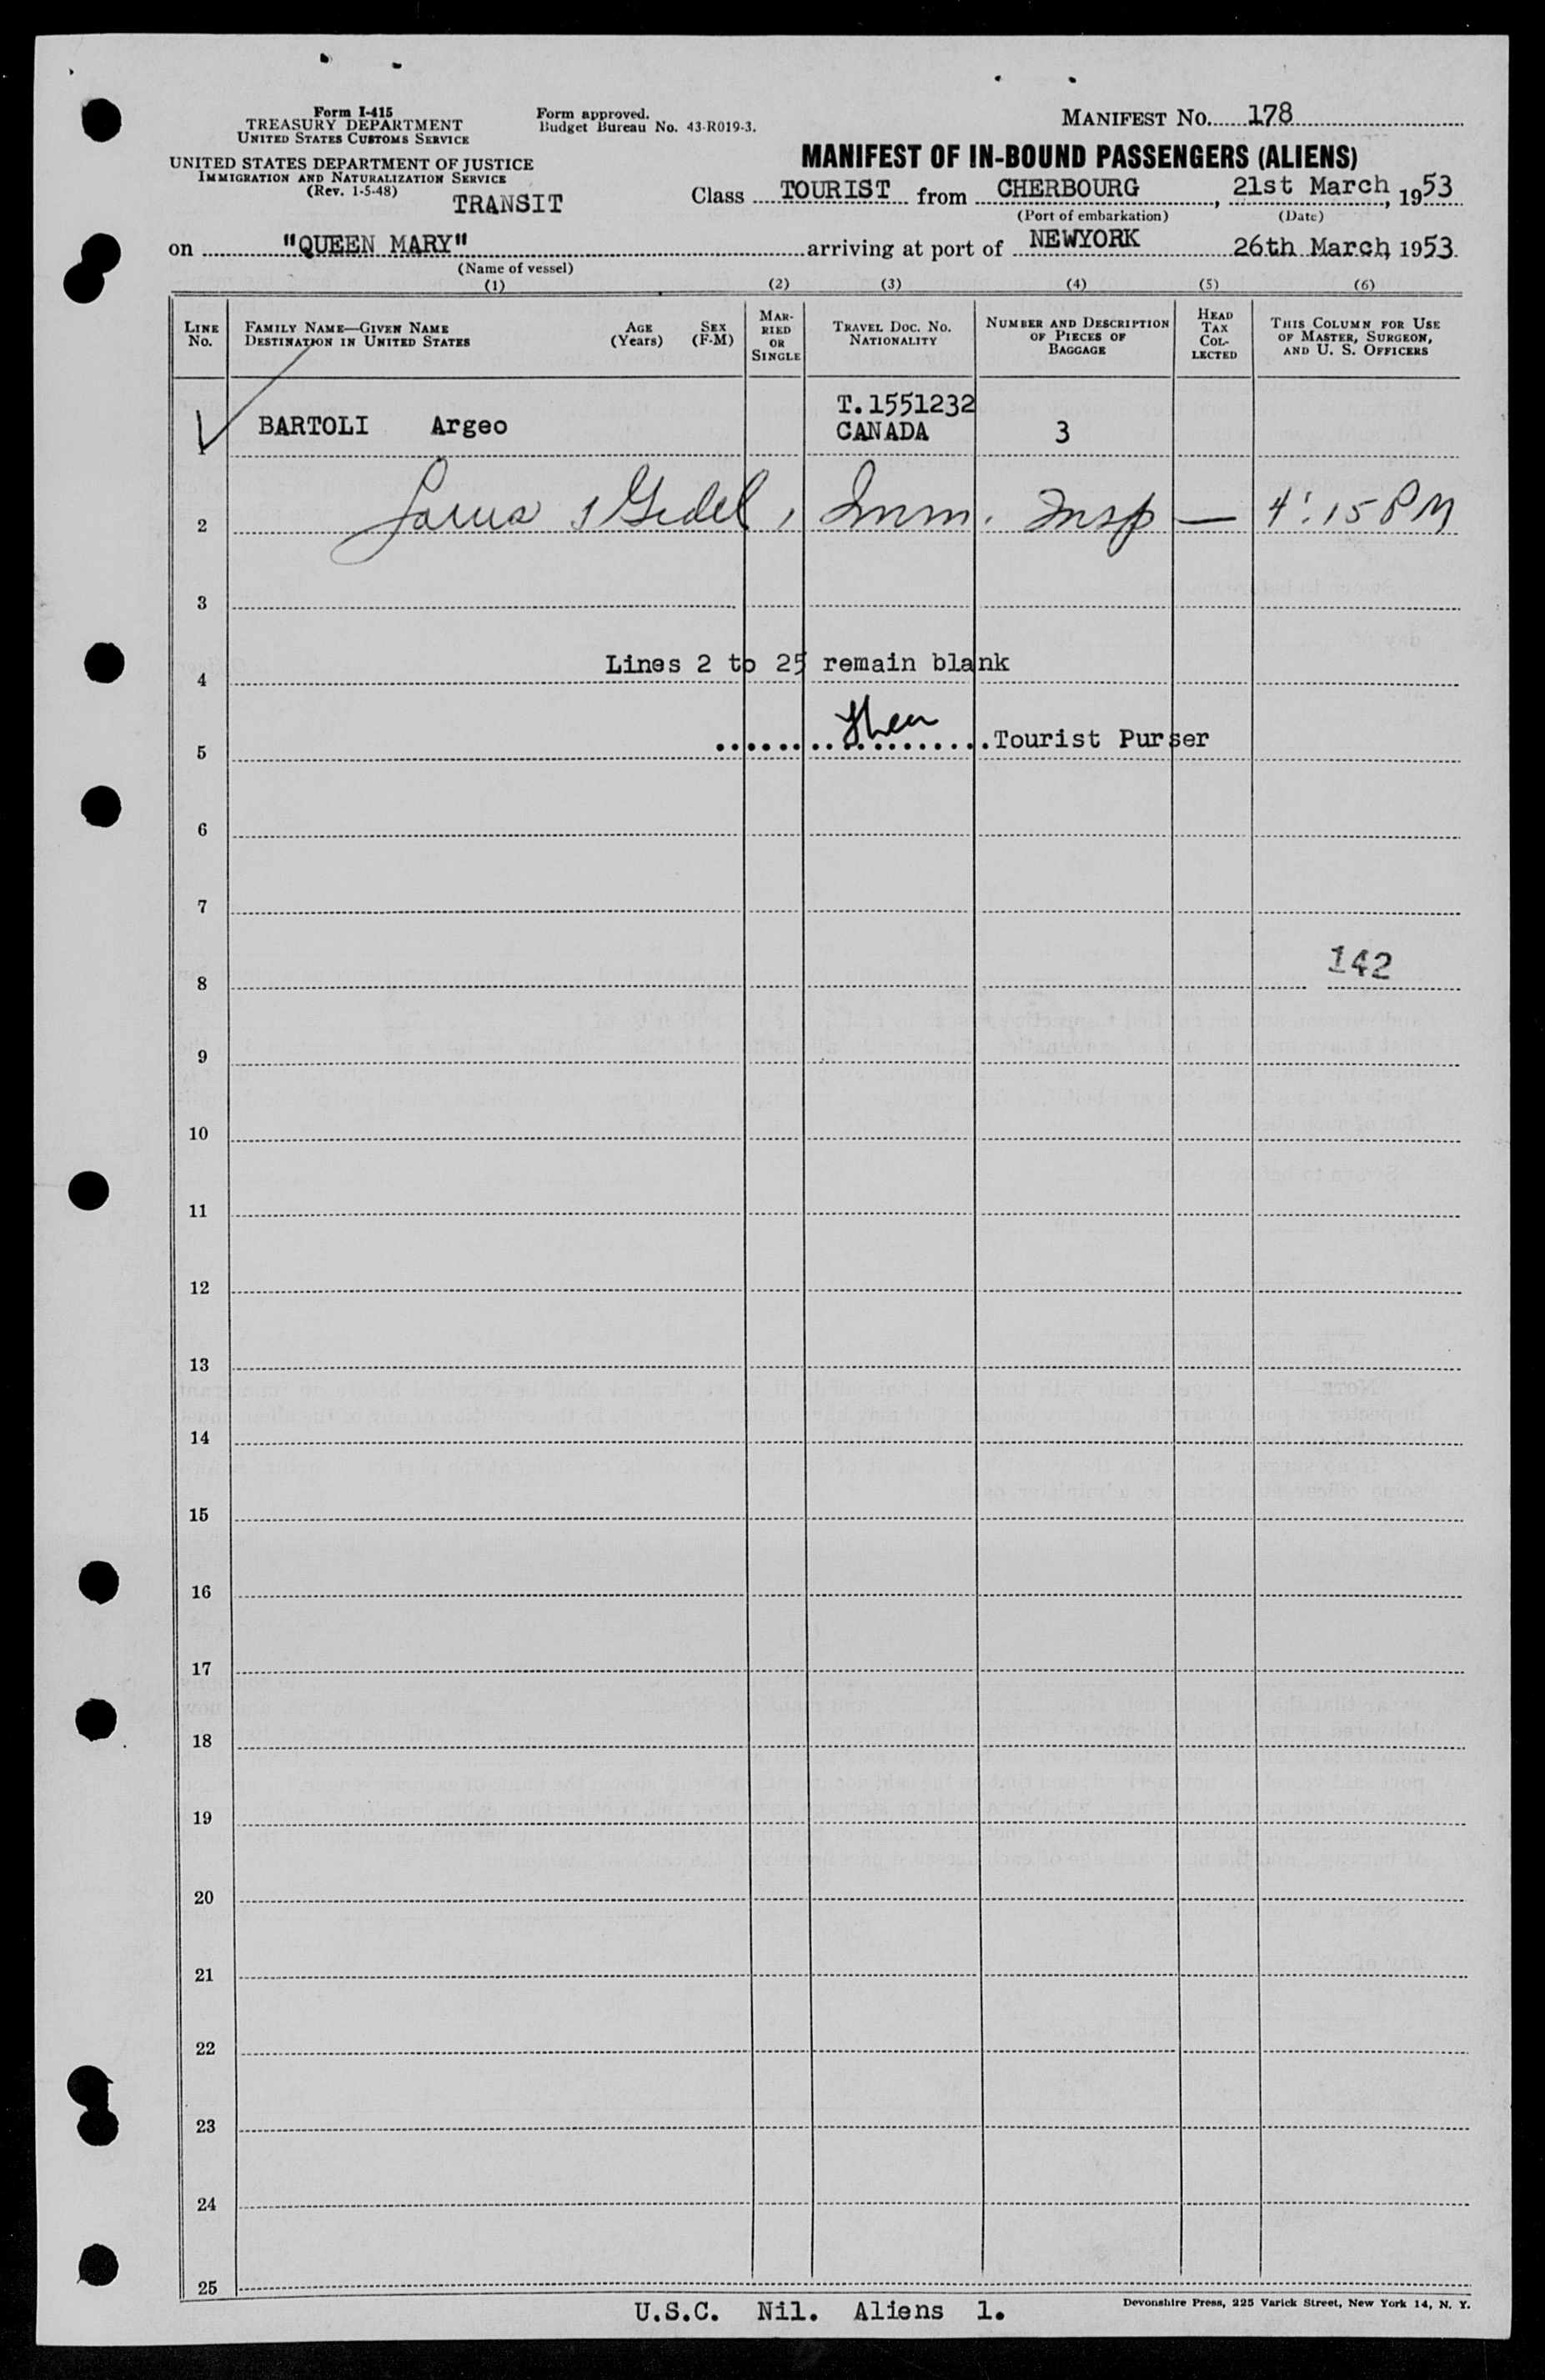 Form I-415
TREASURY DEPARTMENT
UNITED STATES CUSTOMS SERVICE
UNITED STATES DEPARTMENT OF JUSTICE
IMMIGRATION AND NATURALIZATION SERVICE
(Rev. 1-5-48)
TRANSIT
Form approved.
Budget Bureau No. 43-R019-3.
MANIFEST NO. 178
MANIFEST OF IN-BOUND PASSENGERS (ALIENS)
Class TOURIST from CHERBOURG, 21st March, 1953
(Port of embarkation) (Date)
on "QUEEN MARY" arriving at port of NEWYORK 26th March, 1953.
(Name of vessel)
(1) (2) (3) (4) (5) (6)
LINE No.
FAMILY NAME—GIVEN NAME
DESTINATION IN UNITED STATES
AGE (Years)
SEX (F-M)
MARRIED OR SINGLE
TRAVEL DOC. NO. NATIONALITY
NUMBER AND DESCRIPTION OF PIECES OF BAGGAGE
HEAD TAX COLLECTED
THIS COLUMN FOR USE OF MASTER, SURGEON, AND U. S. OFFICERS
T.1551232
1 BARTOLI Argeo CANADA 3
2 Imm. Insp — 4:15 PM
3
Lines 2 to 25 remain blank
4
5 Tourist Purser
6
7
142
8
9
10
11
12
13
14
15
16
17
18
19
20
21
22
23
24
25
U.S.C. Nil. Aliens 1.
Devonshire Press, 225 Varick Street, New York 14, N. Y.